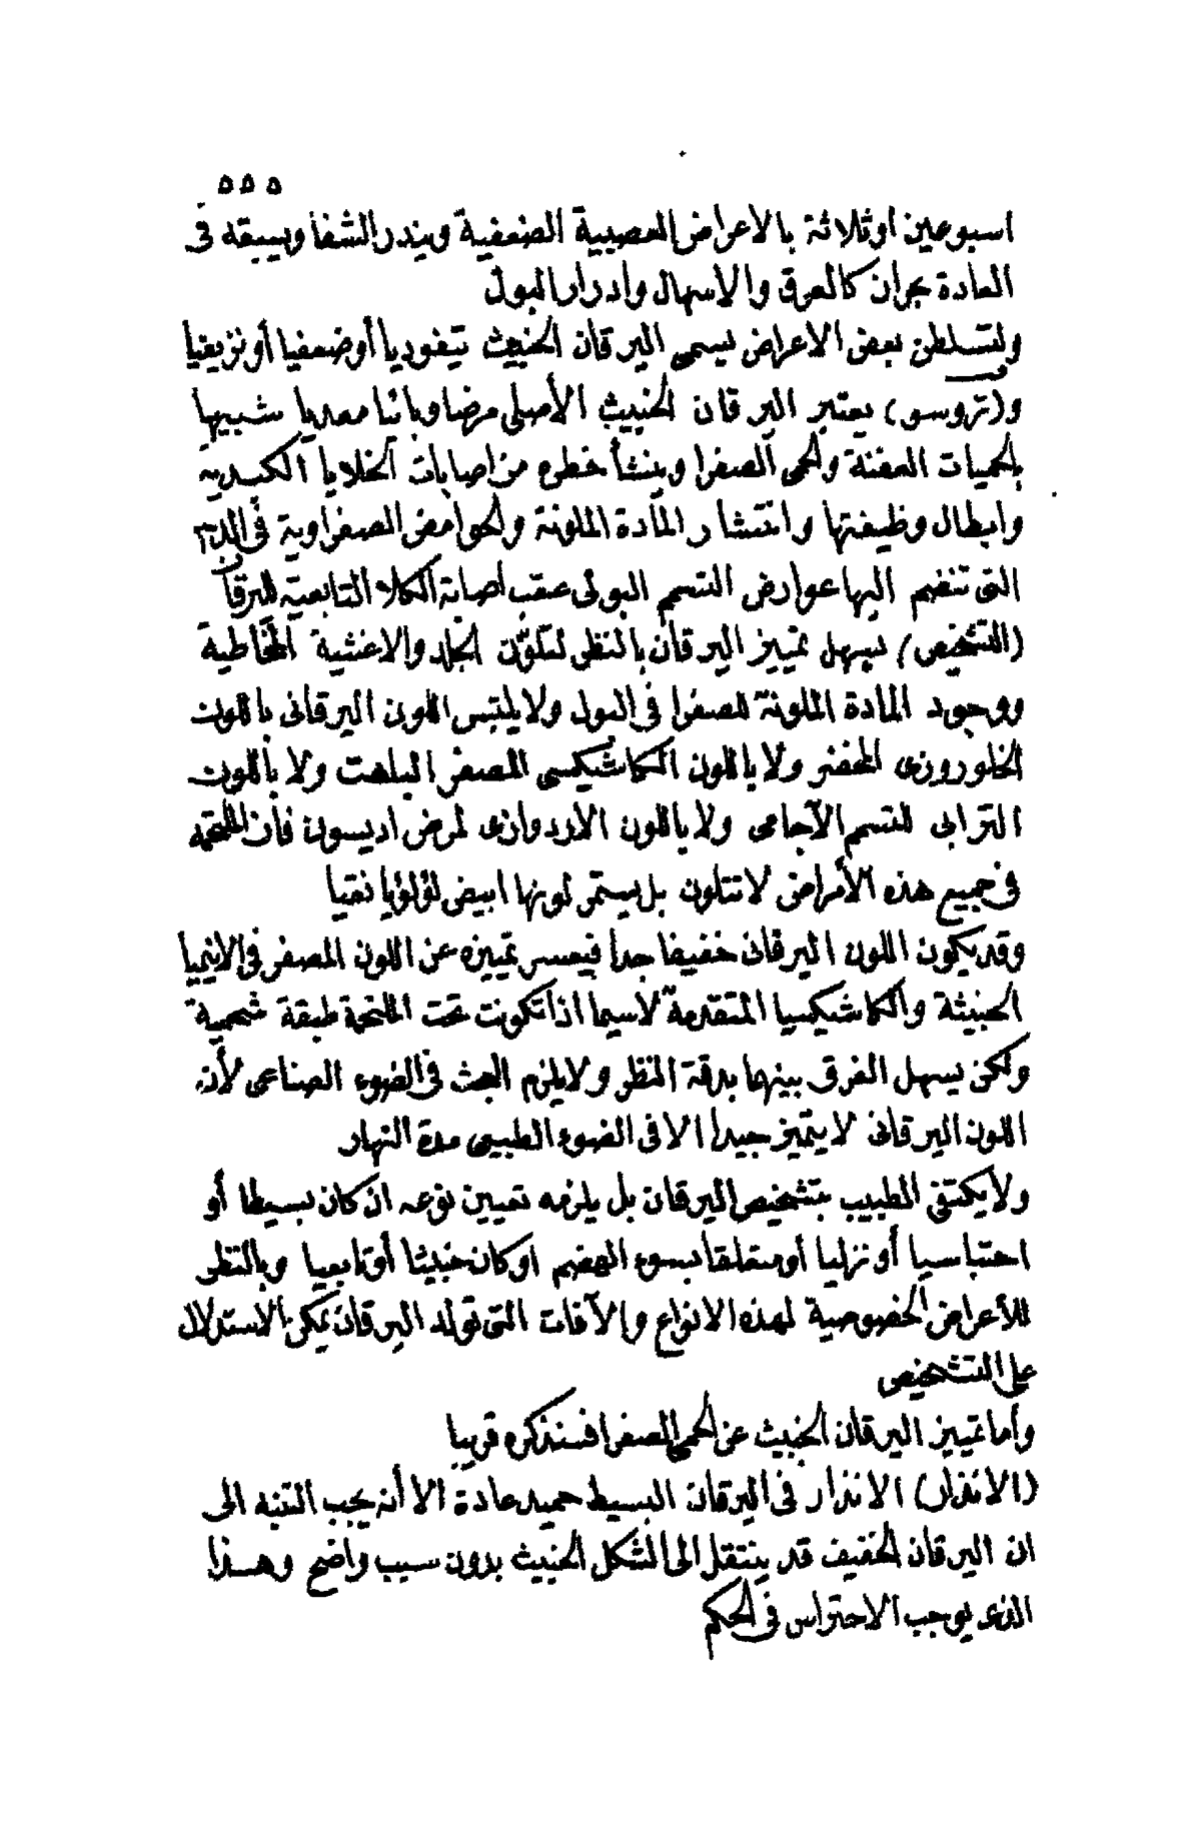 ٥٥٥
اسبوعين اوثلاثة بالاعراض العصبية الضعفية ويندر الشفا ويسبقه فى
العادة بحران كالعرق والاسهال وادرار البول
ولتسلطن بعض الاعراض يسمى اليرقان الخبيث تيفوديا أوضعفيا أونزيفيا
و(تروسو) يعتبر اليرقان الخبيث الأصلى مرضا وبائيا معديا شبيها
بالحميات العفنة والحمى الصفرا وينشأ خطره من اصابات الخلايا الكبدية
وابطال وظيفتها وانتشار المادة الملونة والحوامض الصفراوية فى الدم
التى تنضم اليها عوارض التسمم البولى عقب اصابة الكلا التابعية لليرقان
(التشخيص) يسهل تمييز اليرقان بالنظر لتلوّن الجلد والاغشية المخاطية
ووجود المادة الملونة للصفرا فى البول ولا يلتبس اللون اليرقانى باللون
الخلوروزى المخضر ولا باللون الكاشيكسى المصفر الباهت ولا باللون
الترابى للتسمم الآجامى ولا باللون الاردوازى لمرض اديسون فان الملتحمة
فى جميع هذه الأمراض لا تتلون بل يستمر لونها ابيض لؤلؤيا نقيا
وقد يكون اللون اليرقانى خفيفا جدا فيعسر تمييزه عن اللون المصفر فى الانيميا
الخبيثة والكاشيكسيا المتقدمة لاسيما اذا تكونت تحت الملتحمة طبقة شحمية
ولكن يسهل الفرق بينهما بدقة النظر ولا يلزم البحث فى الضوء الصناعى لأن
اللون اليرقانى لا يتميز جيدا الا فى الضوء الطبيعى مدة النهار
ولا يكتفى الطبيب بتشخيص اليرقان بل يلزمه تعيين نوعه ان كان بسيطا أو
احتباسيا أونزليا أومتعلقا بسوء الهضم اوكان خبيثا أوتابعيا وبالنظر
للأعراض الخصوصية لهذه الانواع والآفات التى تولد اليرقان يمكن الاستدلال
على التشخيص
وأما تمييز اليرقان الخبيث عن الحمى الصفرا فسنذكره قريبا
(الانذار) الانذار فى اليرقان البسيط حميد عادة الا أنه يجب التنبه الى
ان اليرقان الخفيف قد ينتقل الى الشكل الخبيث بدون سبب واضح وهذا
الذى يوجب الاحتراس فى الحكم